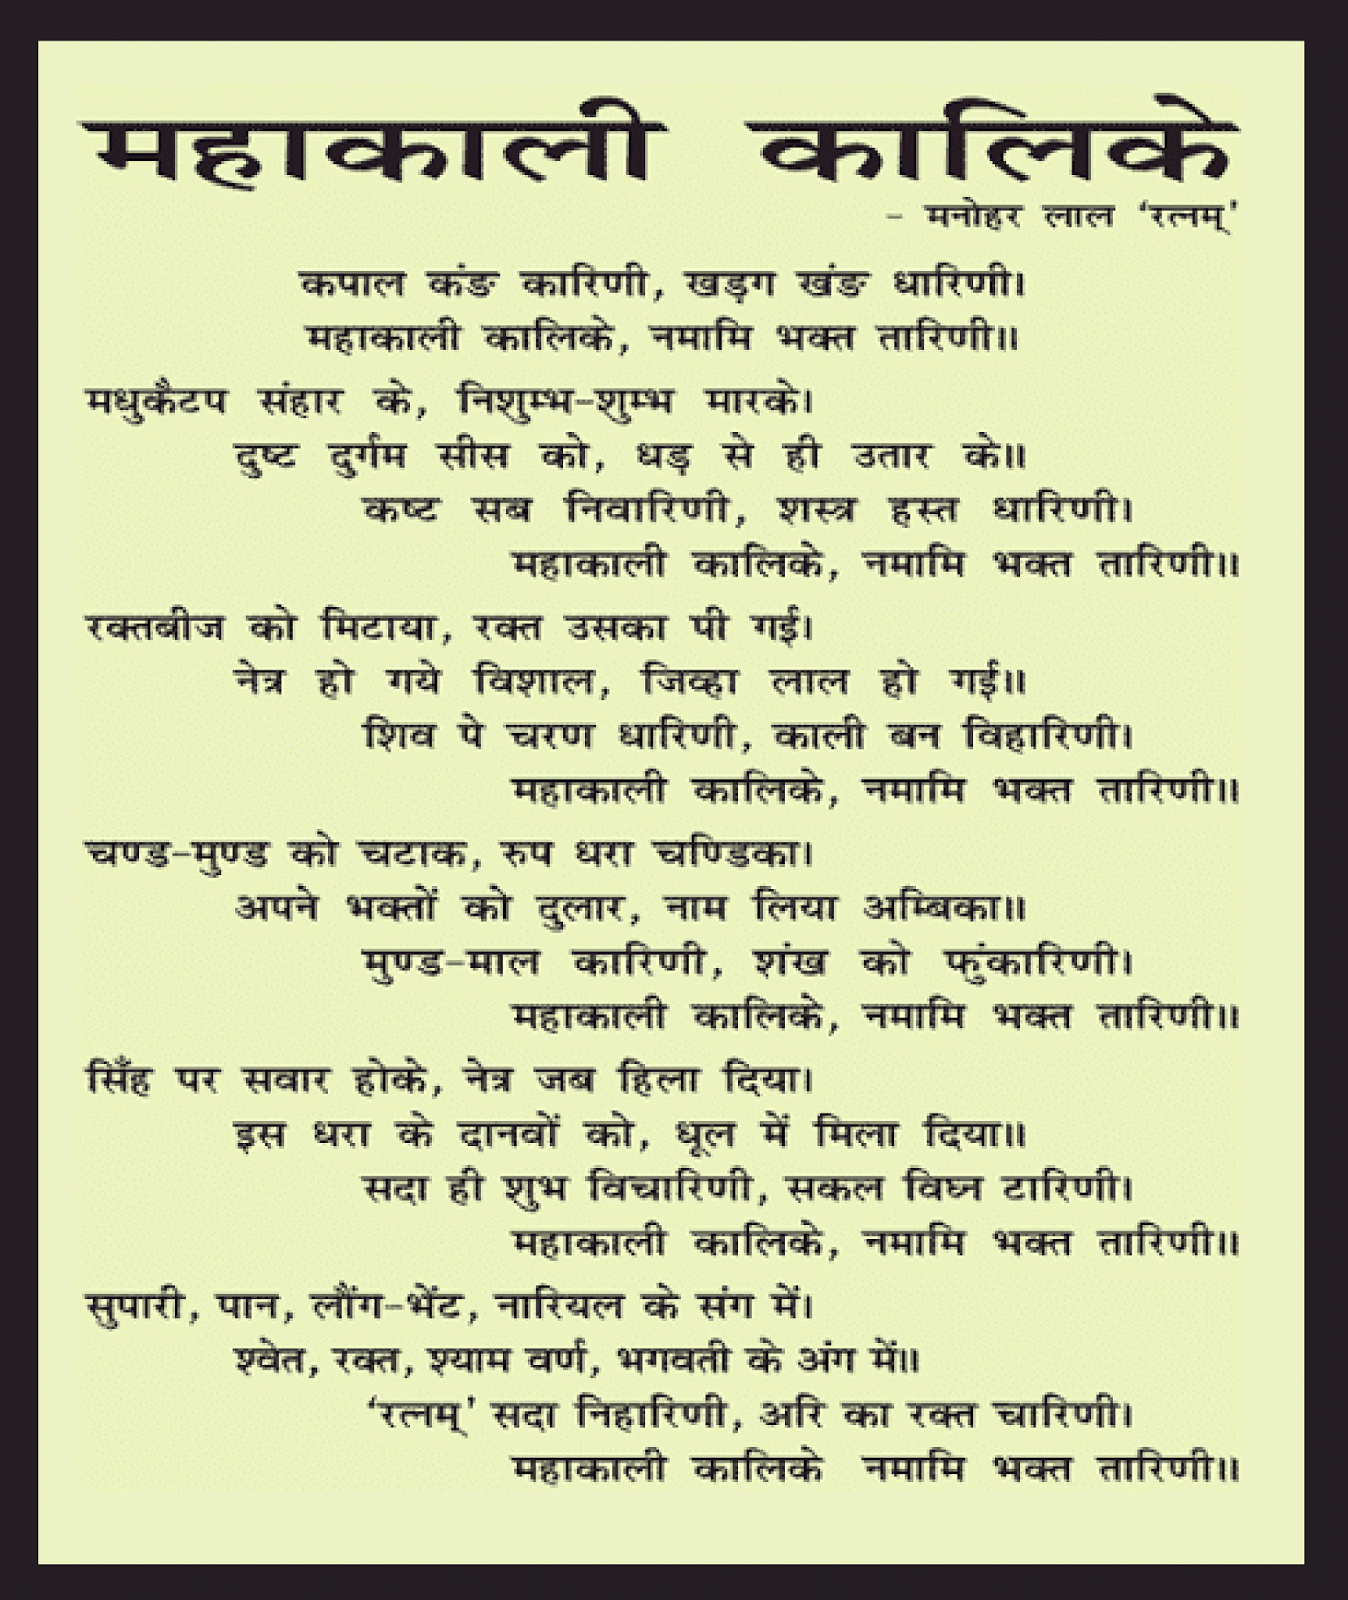 महाकाली कालिके
- मनोहर लाल ‘रत्नम्’
कपाल कंङ कारिणी, खड़ग खंङ धारिणी।
महाकाली कालिके, नमामि भक्त तारिणी॥
मधुकैटप संहार के, निशुम्भ-शुम्भ मारके।
दुष्ट दुर्गम सीस को, धड़ से ही उतार के॥
कष्ट सब निवारिणी, शस्त्र हस्त धारिणी।
महाकाली कालिके, नमामि भक्त तारिणी॥
रक्तबीज को मिटाया, रक्त उसका पी गई।
नेत्र हो गये विशाल, जिव्हा लाल हो गई॥
शिव पे चरण धारिणी, काली बन विहारिणी।
महाकाली कालिके, नमामि भक्त तारिणी॥
चण्ड-मुण्ड को चटाक, रुप धरा चण्डिका।
अपने भक्तों को दुलार, नाम लिया अम्बिका॥
मुण्ड-माल कारिणी, शंख को फुंकारिणी।
महाकाली कालिके, नमामि भक्त तारिणी॥
सिँह पर सवार होके, नेत्र जब हिला दिया।
इस धरा के दानवों को, धूल में मिला दिया॥
सदा ही शुभ विचारिणी, सकल विघ्न टारिणी।
महाकाली कालिके, नमामि भक्त तारिणी॥
सुपारी, पान, लौंग-भेंट, नारियल के संग में।
श्वेत, रक्त, श्याम वर्ण, भगवती के अंग में॥
‘रत्नम्’ सदा निहारिणी, अरि का रक्त चारिणी।
महाकाली कालिके नमामि भक्त तारिणी॥